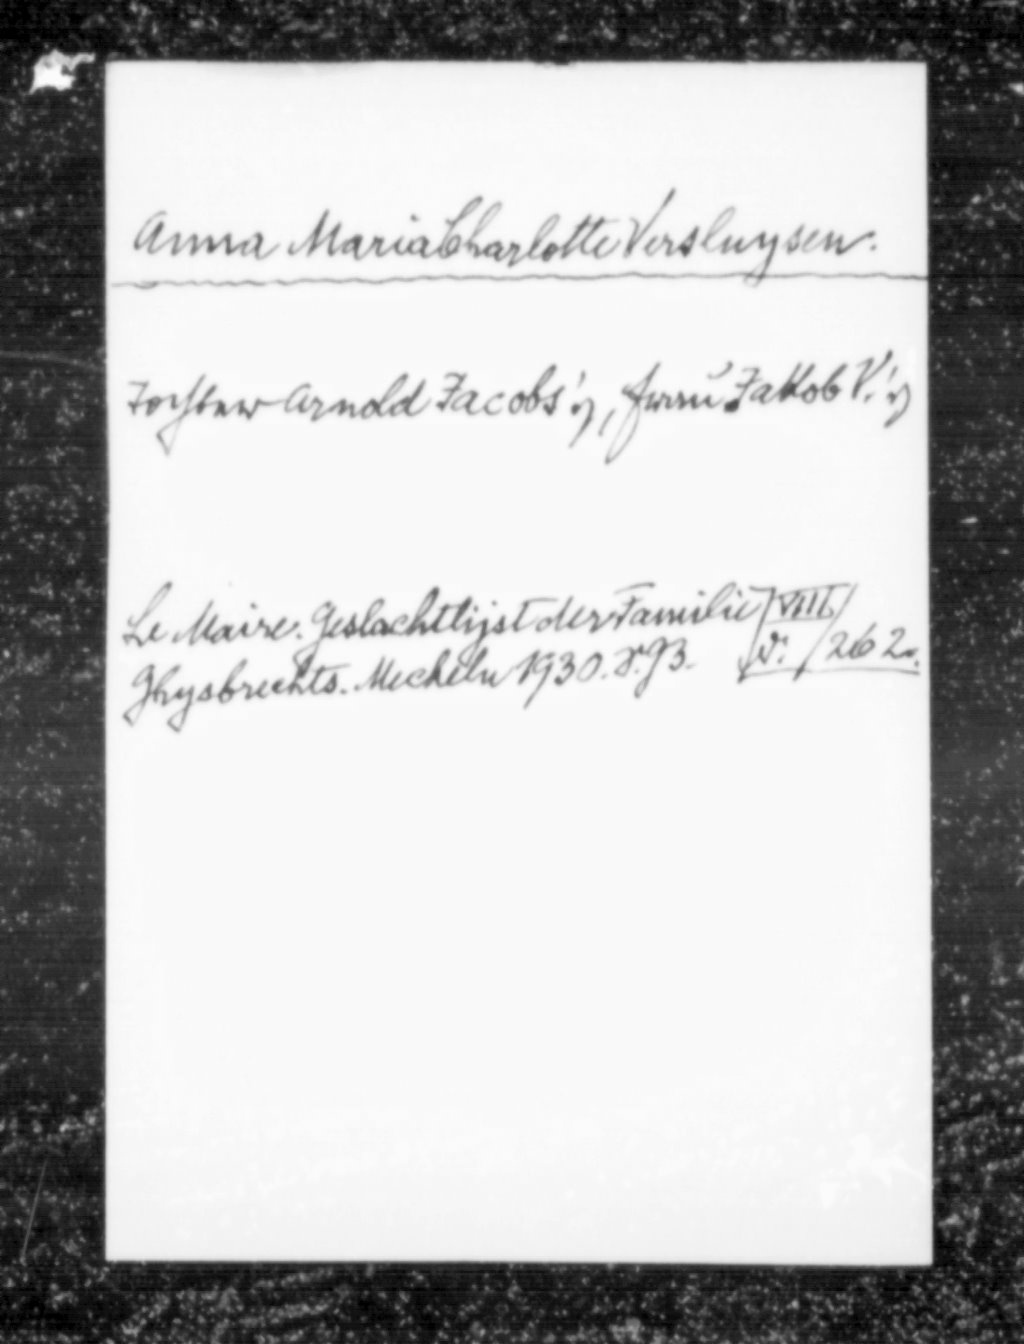 Anna Maria Charlotte Versluysen.
Tochter Arnold Jacobs's, Frau Jakob V.'s
Le Maire. Geslachtlijst der Familie VIII
Ghysbrechts. Mecheln 1930. S. 93. 262.